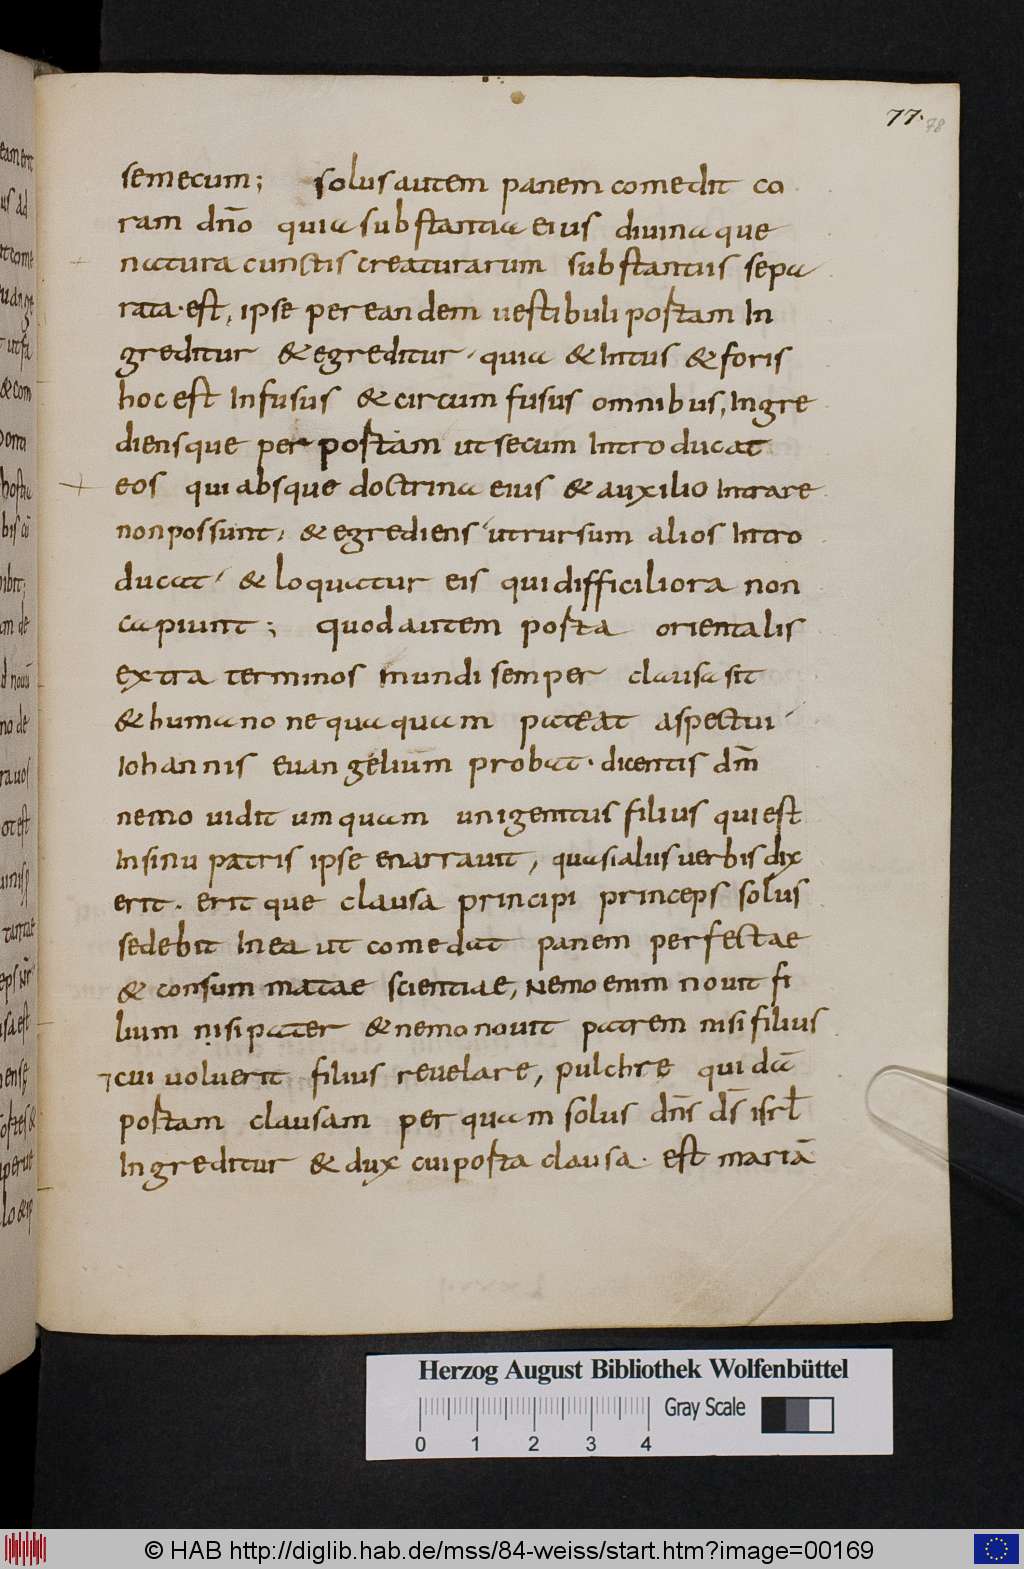 77.
78
semecum; solus autem panem comedit co
ram dño quia substantia eius diuinaque
natura cunctis creaturarum substantiis sepa
rata · est, ipse per eandem uestibuli portam In
greditur & egreditur, quia & Intus & foris
hoc est Infusus & circumfusus omnibus, Ingre
diensque per portam ut secum Introducat
eos qui absque doctrina eius & auxilio Intrare
non possunt, & egrediens ut rursum alios Intro
ducat, & loquatur eis qui difficiliora non
capiunt; quod autem porta orientalis
extra terminos mundi semper clausa sit
& humano nequaquam pateat aspectui
Iohannis euangelium probat · dicentis dm̄
nemo uidit umquam unigenitus filius qui est
In sinu patris ipse enarrauit, quasi aliis uerbis dix
erit · eritque clausa principi princeps solus
sedebit In ea ut comedat panem perfectae
& consummatae scientiae, Nemo enim nouit fi
lium nisi pater & nemo nouit patrem nisi filius
⁊ cui uoluerit filius reuelare, pulchre quidā
portam clausam per quam solus dn̄s ds̄ isrl̄
Ingreditur & dux cui porta clausa · est mariā
Herzog August Bibliothek Wolfenbüttel
Gray Scale
0 1 2 3 4
© HAB http://diglib.hab.de/mss/84-weiss/start.htm?image=00169